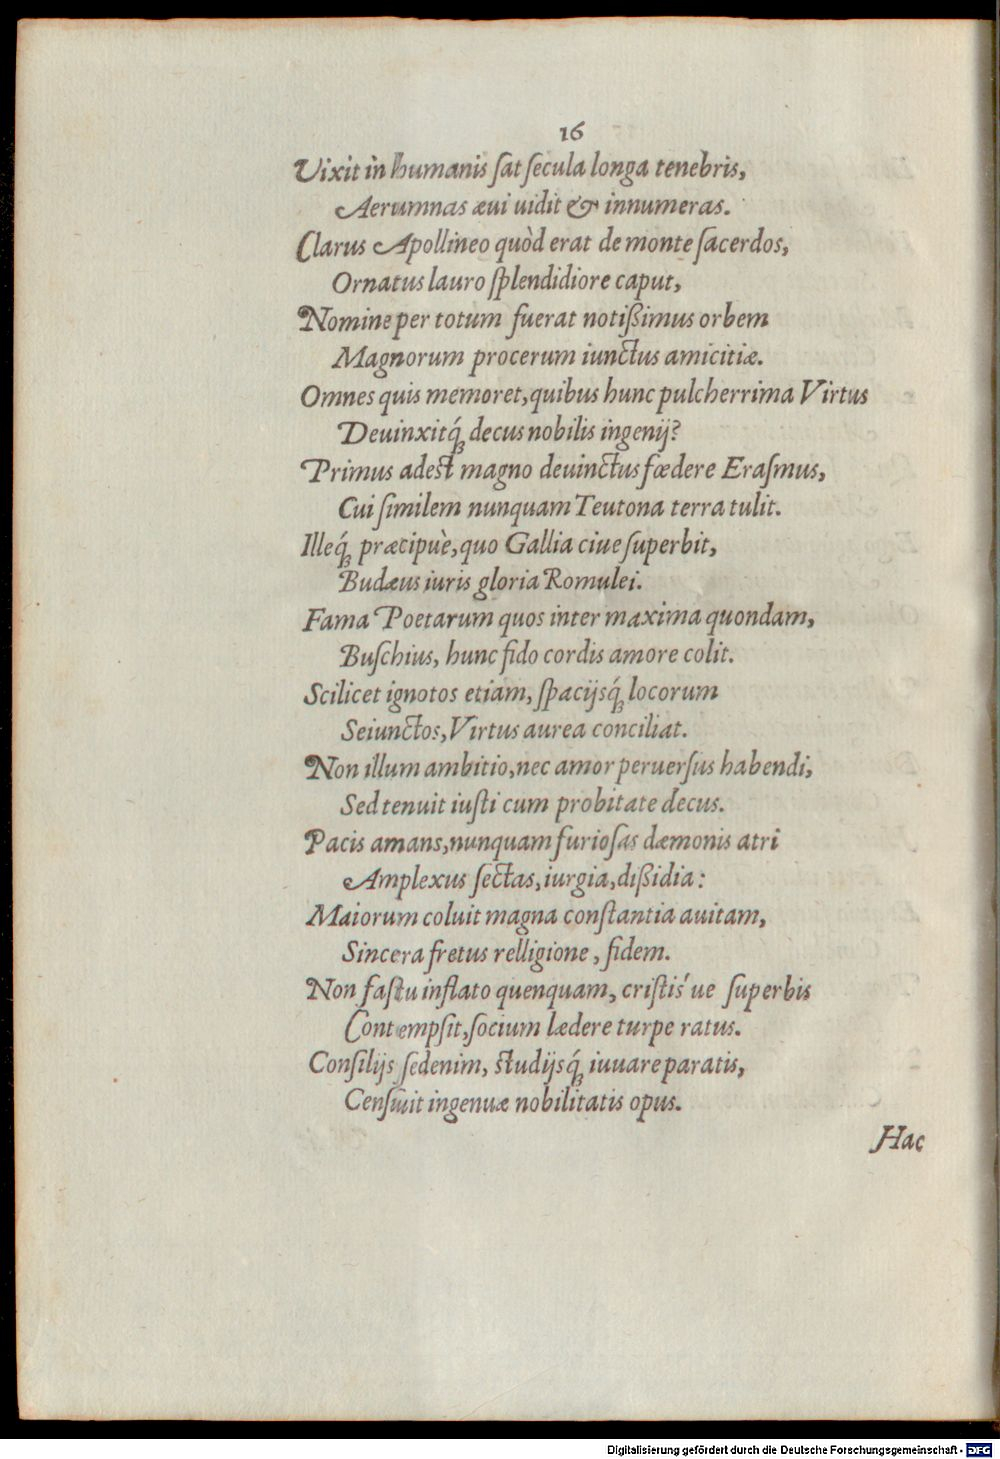 16
Vixit in humanis ſat ſecula longa tenebris,
Aerumnas æui uidit & innumeras.
Clarus Apollineo quòd erat de monte ſacerdos,
Ornatus lauro ſplendidiore caput,
Nomine per totum fuerat notißimus orbem
Magnorum procerum iunctus amicitiæ.
Omnes quis memoret, quibus hunc pulcherrima Virtus
Deuinxitq́ꝫ decus nobilis ingenij?
Primus adest magno deuinctus fœdere Eraſmus,
Cui ſimilem nunquam Teutona terra tulit.
Illeq́ꝫ præcipuè, quo Gallia ciue ſuperbit,
Budæus iuris gloria Romulei.
Fama Poetarum quos inter maxima quondam,
Buſchius, hunc fido cordis amore colit.
Scilicet ignotos etiam, ſpacijsq́ꝫ locorum
Seiunctos, Virtus aurea conciliat.
Non illum ambitio, nec amor peruerſus habendi,
Sed tenuit iuſti cum probitate decus.
Pacis amans, nunquam furioſas dæmonis atri
Amplexus ſectas, iurgia, dißidia:
Maiorum coluit magna conſtantia auitam,
Sincera fretus relligione, fidem.
Non faſtu inflato quenquam, criſtis´ue ſuperbis
Contempſit, ſocium lædere turpe ratus.
Conſilijs ſedenim, studijsq́ꝫ iuuare paratis,
Cenſuit ingenuæ nobilitatis opus.
Hac
Digitalisierung gefördert durch die Deutsche Forschungsgemeinschaft - DFG